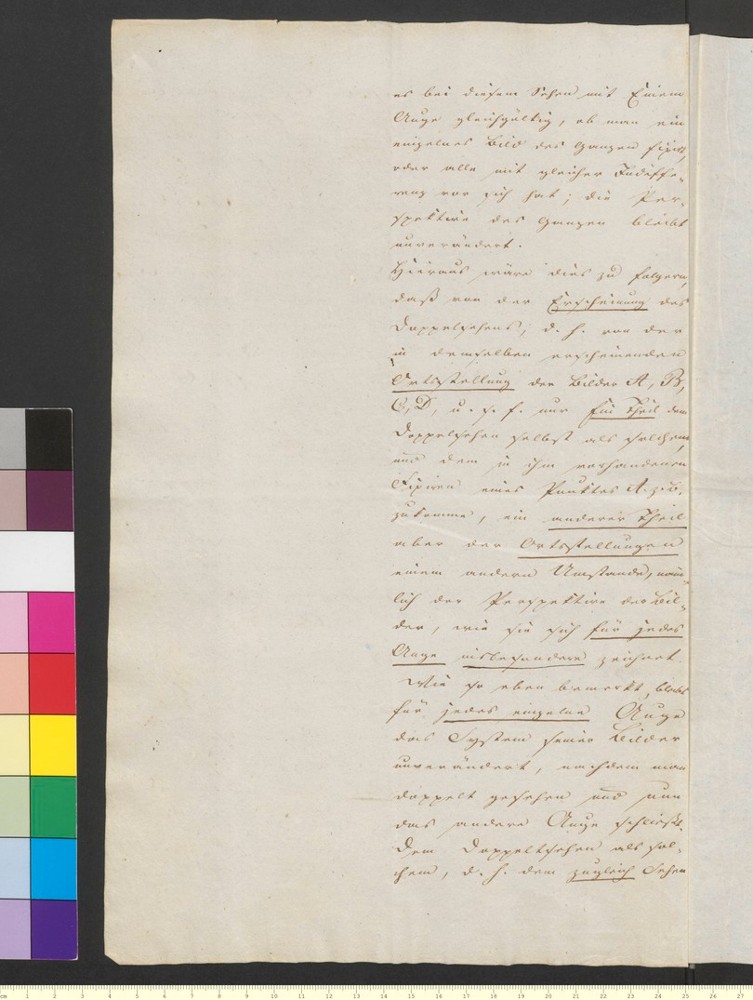 es bei diesem Sehen mit Einem
Auge gleichgültig, ob man ein
einzelnes Bild des Ganzen fixirt,
oder alle mit gleicher Indiffe-
renz vor sich hat; die Per-
spektive des Ganzen bleibt
unverändert.
Hieraus wäre dies zu folgern,
daß von der Erscheinung des
Doppelsehens, d. h. von der
in demselben erscheinenden
Ortsstellung der Bilder A, B,
C, D, u. s. f. nur Ein Theil dem
Doppelsehen selbst als solchem,
und dem in ihm vorhandenen
Fixiren eines Punktes
zukomme, ein anderer Theil
aber der Ortsstellungen
einem andern Umstande, näm-
lich der Perspektive der Bil-
der, wie sie sich für jedes
Auge insbesondere zeichnet.
Wie so eben bemerkt, bleibt
für jedes einzelne Auge
das System seiner Bilder
unverändert, nachdem man
doppelt gesehen und nun
das andere Auge schließt.
Dem Doppeltsehen als sol-
chem, d. h. dem zugleich Sehen